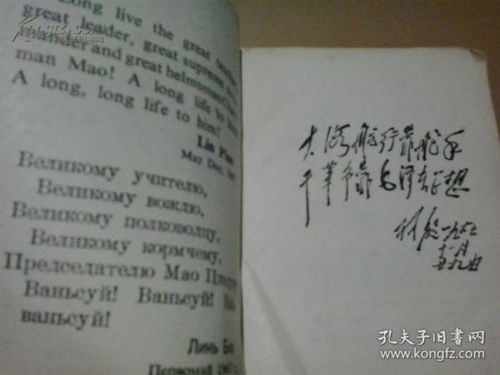 Long live the great
great leader, great supreme
and great helmsman
man Mao! A long life to
A long, long life to him!
Lin
May Day,
Великому учителю,
Великому вождю,
Великому полководцу,
Великому кормчему,
Председателю Мао
Ваньсуй! Ваньсуй!
ваньсуй!
Линь
Первомай
大海航行靠舵手
干革命靠毛泽东思想
林彪
孔夫子旧书网
www.kongfz.com